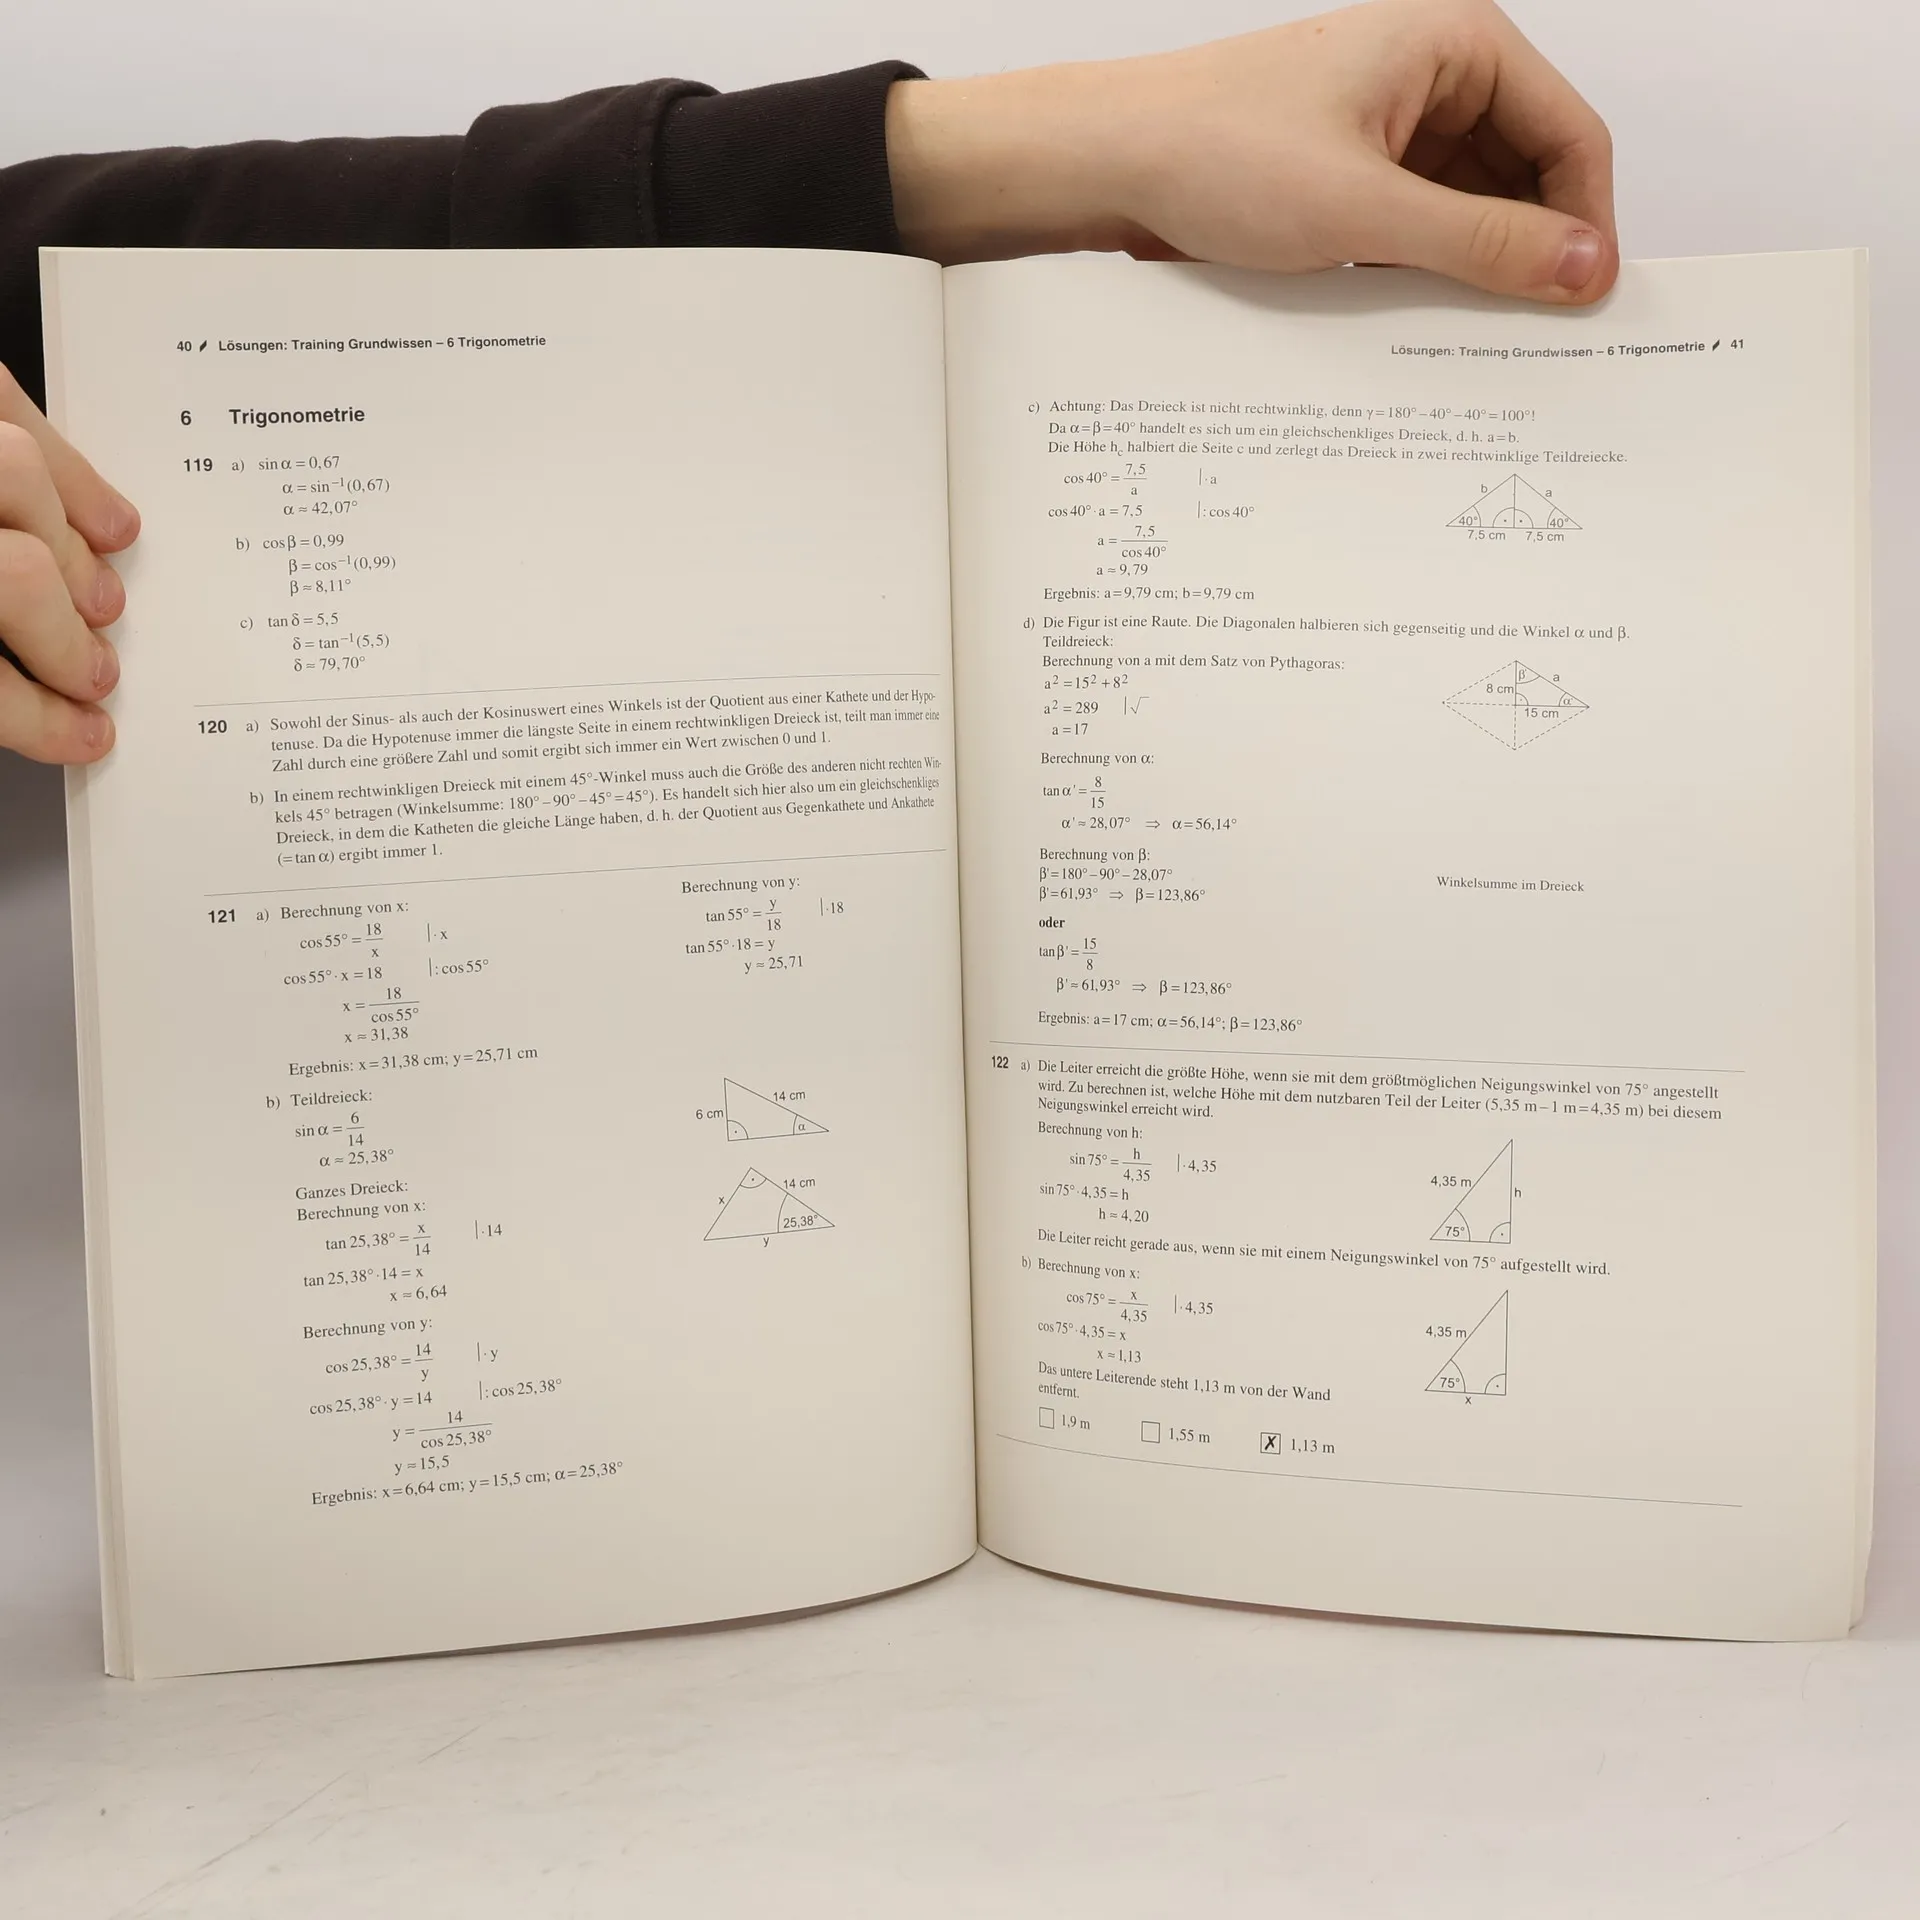 40 Lösungen: Training Grundwissen – 6 Trigonometrie
6 Trigonometrie
119 a) sin α = 0,67
α = sin⁻¹(0,67)
α ≈ 42,07°
b) cos β = 0,99
β = cos⁻¹(0,99)
β ≈ 8,11°
c) tan δ = 5,5
δ = tan⁻¹(5,5)
δ ≈ 79,70°
120 a) Sowohl der Sinus- als auch der Kosinuswert eines Winkels ist der Quotient aus einer Kathete und der Hypo-
tenuse. Da die Hypotenuse immer die längste Seite in einem rechtwinkligen Dreieck ist, teilt man immer eine
Zahl durch eine größere Zahl und somit ergibt sich immer ein Wert zwischen 0 und 1.
b) In einem rechtwinkligen Dreieck mit einem 45°-Winkel muss auch die Größe des anderen nicht rechten Win-
kels 45° betragen (Winkelsumme: 180° – 90° – 45° = 45°). Es handelt sich hier also um ein gleichschenkliges
Dreieck, in dem die Katheten die gleiche Länge haben, d. h. der Quotient aus Gegenkathete und Ankathete
(= tan α) ergibt immer 1.
121 a) Berechnung von x:
cos 55° = 18/x |· x
cos 55° · x = 18 |: cos 55°
x = 18/cos 55°
x ≈ 31,38
Berechnung von y:
tan 55° = y/18 |· 18
tan 55° · 18 = y
y ≈ 25,71
Ergebnis: x = 31,38 cm; y = 25,71 cm
b) Teildreieck:
sin α = 6/14
α ≈ 25,38°
6 cm 14 cm α
Ganzes Dreieck:
Berechnung von x:
tan 25,38° = x/14 |· 14
tan 25,38° · 14 = x
x ≈ 6,64
x 14 cm 25,38° y
Berechnung von y:
cos 25,38° = 14/y |· y
cos 25,38° · y = 14 |: cos 25,38°
y = 14/cos 25,38°
y ≈ 15,5
Ergebnis: x = 6,64 cm; y = 15,5 cm; α = 25,38°
Lösungen: Training Grundwissen – 6 Trigonometrie 41
c) Achtung: Das Dreieck ist nicht rechtwinklig, denn γ = 180° – 40° – 40° = 100°!
Da α = β = 40° handelt es sich um ein gleichschenkliges Dreieck, d. h. a = b.
Die Höhe h_c halbiert die Seite c und zerlegt das Dreieck in zwei rechtwinklige Teildreiecke.
cos 40° = 7,5/a |· a
cos 40° · a = 7,5 |: cos 40°
a = 7,5/cos 40°
a ≈ 9,79
b a
40° 40°
7,5 cm 7,5 cm
Ergebnis: a = 9,79 cm; b = 9,79 cm
d) Die Figur ist eine Raute. Die Diagonalen halbieren sich gegenseitig und die Winkel α und β.
Teildreieck:
Berechnung von a mit dem Satz von Pythagoras:
a² = 15² + 8²
a² = 289 |√
a = 17
β' a
8 cm α'
15 cm
Berechnung von α:
tan α' = 8/15
α' ≈ 28,07° ⇒ α = 56,14°
Berechnung von β:
β' = 180° – 90° – 28,07° Winkelsumme im Dreieck
β' = 61,93° ⇒ β = 123,86°
oder
tan β' = 15/8
β' ≈ 61,93° ⇒ β = 123,86°
Ergebnis: a = 17 cm; α = 56,14°; β = 123,86°
122 a) Die Leiter erreicht die größte Höhe, wenn sie mit dem größtmöglichen Neigungswinkel von 75° angestellt
wird. Zu berechnen ist, welche Höhe mit dem nutzbaren Teil der Leiter (5,35 m – 1 m = 4,35 m) bei diesem
Neigungswinkel erreicht wird.
Berechnung von h:
sin 75° = h/4,35 |· 4,35
sin 75° · 4,35 = h
h ≈ 4,20
4,35 m h
75°
Die Leiter reicht gerade aus, wenn sie mit einem Neigungswinkel von 75° aufgestellt wird.
b) Berechnung von x:
cos 75° = x/4,35 |· 4,35
cos 75° · 4,35 = x
x ≈ 1,13
4,35 m
75°
x
Das untere Leiterende steht 1,13 m von der Wand
entfernt.
☐ 1,9 m ☐ 1,55 m ☒ 1,13 m